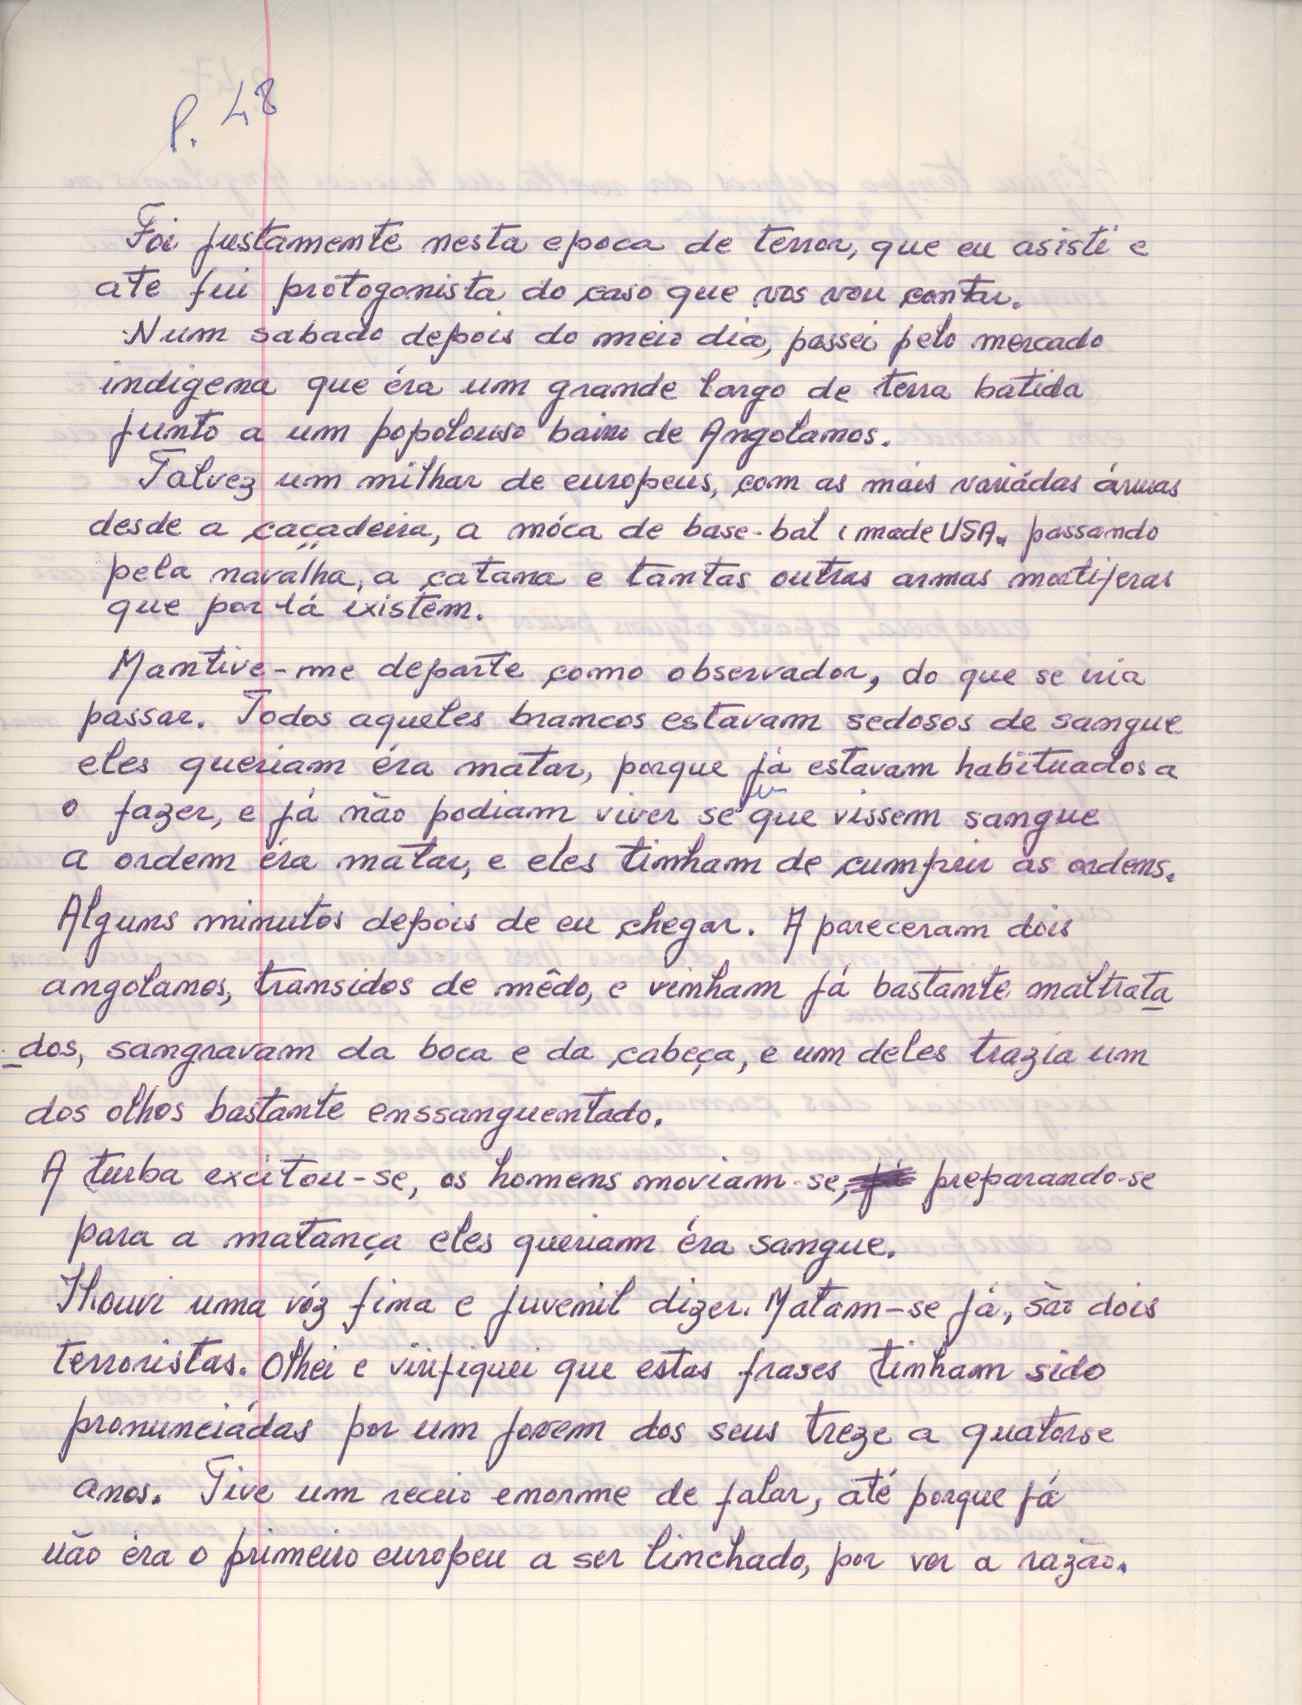 P. 48
Foi justamente nesta epoca de terror, que eu asisti e
ate fui protogonista do caso que vos vou contar.
Num sabado depois do meio dia, passei pelo mercado
indigena que éra um grande largo de terra batida
junto a um popolouso bairro de Angolanos.
Talvez um milhar de europeus, com as mais variádas ármas
desde a caçadeira, a móca de base-bal "made USA" passando
pela navalha, a catana e tantas outras armas mortiferas
que por lá existem.
Mantive-me departe como observador, do que se iria
passar. Todos aqueles brancos estavam sedosos de sangue
eles queriam éra matar, porque já estavam habituados a
o fazer, e já não podiam viver se que vissem sangue
a ordem éra matar, e eles tinham de cumprir as ordens.
Alguns minutos depois de eu chegar. A pareceram dois
angolanos, transidos de mêdo, e vinham já bastante maltrata
dos, sangravam da boca e da cabeça, e um deles trazia um
dos olhos bastante enssanguentado.
A turba excitou-se, os homens moviam-se, preparando-se
para a matança eles queriam éra sangue.
Houvi uma vóz fina e juvenil dizer. Matam-se já, são dois
terroristas. Olhei e virifiquei que estas frases tinham sido
pronunciádas por um jovem dos seus treze a quatorse
anos. Tive um receio enorme de falar, até porque já
não éra o primeiro europeu a ser linchado, por ver a razão.